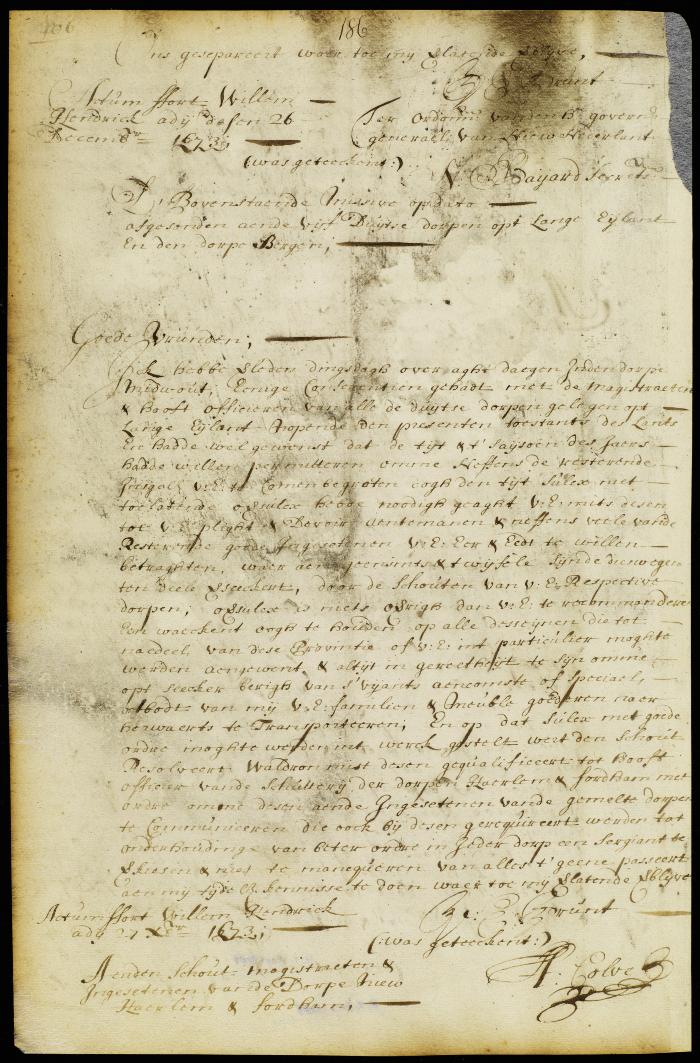 186
Ons gesepareert waer toe my Latende blyve,
V Vrunt
Actum ffort Willem
Hendrick ady desen 26
Decemb 1673
Ter ordon: vanden H governr
generael van Niew Nederlant
(was geteeckent:)
N Bayard Secrets
Bovenstaende Missive op dato
afgesonden aende vyf Duytse dorpen opt Lange Eylant
En den dorpe Bergen;
Goede Vrunden;
Ick hebbe Leden dingsdagh over aght daegen Inden dorpe
Midwout, Eenige Conferentien gehadt met de magistraeten
& hooft officieren van alle de duytse dorpen gelegen opt
Lange Eylant nopende den presenten toestant des Lants
En hadde wel gewenst dat de tyt & t' Saysoen des Jaers
hadde willen permitteren omme neffens de resterende
v: E: te comen begroeten dogh den tyt Sulcx niet
toelatende opsulcx hebbe noodigh geaght v: E: mits desen
tot v: E: plight & Devoir aentemanen & neffens veele vande
Resterende goede Ingesetenen v: E: Eer & Eedt te willen
betraghten, waer aen geensints & twyfele Synde dienwegen
ten deele verseekert, door de Schouten van v: E: Respective
dorpen; opsulcx is niets overigh dan v: E: te recommanderen
Een waeckent oogh te houden op alle desseynen die tot
naedeel van dese Provintie of v: E: int particulier moghte
werden aengewent, & altyt in gereetheyt te syn omme
opt seecker berigh van s' vyants aencomste of speciael
ontbodt van my v: E: familien & meuble goederen naer
herwaerts te Transporteeren; En op dat Sulcx met goede
ordre moghte werden int werck gestelt wert den Schout
Resolveert Waldron mits desen gequalificeert tot hooft
officier vande Schuttery der dorpen Haerlem & fordham met
ordre omme desen aende Ingesetenen vande gemelte dorpen
te Communiceren die oock by desen gerequireert werden tot
onderhoudinge van beter ordre in Jeder dorp een Sergiant te
kiesen & niet te manqueren van alles t' geene passeert
aen my tydel. kennisse te doen waer toe my Latende blyve
V: E: Vrunt
Actum ffort Willem Hendrick
ady 27 Xbr 1673;
(was geteeckent:)
A. Colve
Aenden Schout magistraeten &
Ingesetenen van de Dorpe Niew
Haerlem & fordham;